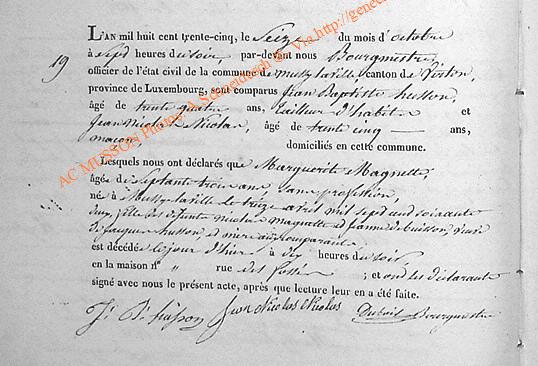 19
L'AN mil huit cent trente-cinq, le Seize du mois d'octobre
à sept heures du soir, par-devant nous Bourgmestre,
officier de l'état civil de la commune de Mussy la ville canton de Virton,
province de Luxembourg, sont comparus Jean Baptiste husson,
âgé de trente quatre ans, tailleur d'habits et
Jean Nicolas Nicolas, âgé de trente cinq ans,
maçon domiciliés en cette commune.
Lesquels nous ont déclarés que Marguerite Magnette,
âgée de Septante trois ans, sans profession,
né à Mussy la ville le treize avril mil sept cent soixante
deux, fille des défunts nicolas magnette et jeanne debuisson, veuve
de jacques husson, et mère au comparant
est décédée le jour d'hier à dix heures du soir
en la maison n° " rue des fossés ; et ont les déclarants
signé avec nous le présent acte, après que lecture leur en a été faite.
J. Bt husson Jean Nicolas Nicolas Bourgmestre
AC MUSSON Photos A Schneidesch © Via http://genec